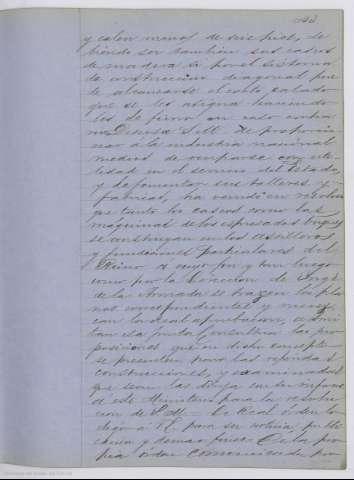 y calen menos de seis pies, de
biendo ser tambien sus cascos
de madera si por el sistema
de construccion diagonal pue
de alcanzarse el corto calado
que se les asigna haciendo
los de fierro en caso contra
rio. Desea S.M. de proporcio
nar á la industria nacional
medios de ocuparse con uti
lidad en el servicio del Estado,
y de fomentar sus talleres y
fabricas, ha venido en resolver
que tanto los cascos como las
maquinas de los espresados buques
se construyan en los astilleros
y fundiciones particulares del
Reino á cuyo fin y tan luego
como por la Direccion de Inge
de la Armada se hagan los pla
nos correspondientes y merez
can la Real aprobacion, admi
tan esa Junta Consultiva las pro
posiciones que en dicho concepto
se presenten para las referidas
construcciones, y examinadas
que sean las dirija con su informe
á este Ministerio para la resolu
cion de S.M. De Real orden lo
digo á V.E. para su noticia, publi
cacion y demas fines. De la pro
pia orden comunicada de pro